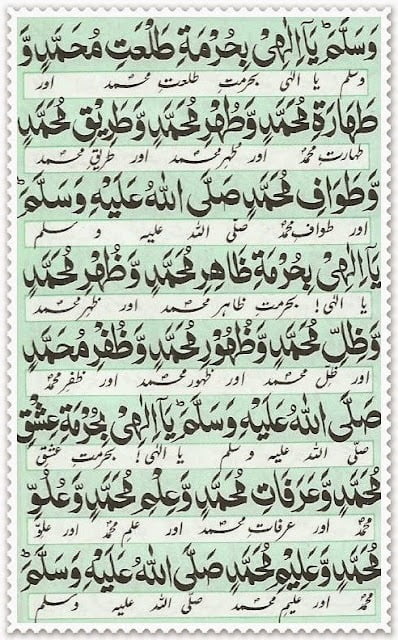 وَسَلَّمَ يَآ اِلٰهِیْ بِحُرْمَةِ طَلْعَتِ مُحَمَّدٍ وَّ
وسلم یا الٰہی بحرمتِ طلعتِ محمد اور
طَهَارَةِ مُحَمَّدٍ وَّطُهْرِ مُحَمَّدٍ وَّطَرِيْقِ مُحَمَّدٍ
طہارتِ محمدؐ اور طہرِ محمد اور طریقِ محمد
وَّطَوَافِ مُحَمَّدٍ صَلَّی اللهُ عَلَيْهِ وَسَلَّمَ
اور طوافِ محمدؐ صلّی اللہ علیہ و سلم
يَآ اِلٰهِیْ بِحُرْمَةِ ظَاهِرِ مُحَمَّدٍ وَّظُهْرِ مُحَمَّدٍ
یا الٰہی! بحرمتِ ظاہرِ محمد اور ظہرِ محمد
وَّظِلِّ مُحَمَّدٍ وَّظُهُوْرِ مُحَمَّدٍ وَّظُفْرِ مُحَمَّدٍ
اور ظلِ محمد اور ظہورِ محمد اور ظفرِ محمدؐ
صَلَّی اللهُ عَلَيْهِ وَسَلَّمَ يَآ اِلٰهِیْ بِحُرْمَةِ عِشْقِ
صلّی اللہ علیہ و سلم یا الٰہی! بحرمتِ عشقِ
مُحَمَّدٍ وَّعَرَفَاتِ مُحَمَّدٍ وَّعِلْمِ مُحَمَّدٍ وَّعُلُوِّ
محمدؐ اور عرفاتِ محمد اور علمِ محمدؐ اور علوِّ
مُحَمَّدٍ وَّعَلِيْمِ مُحَمَّدٍ صَلَّی اللهُ عَلَيْهِ وَسَلَّمَ
محمدؐ اور علیمِ محمد صلّی اللہ علیہ وسلم